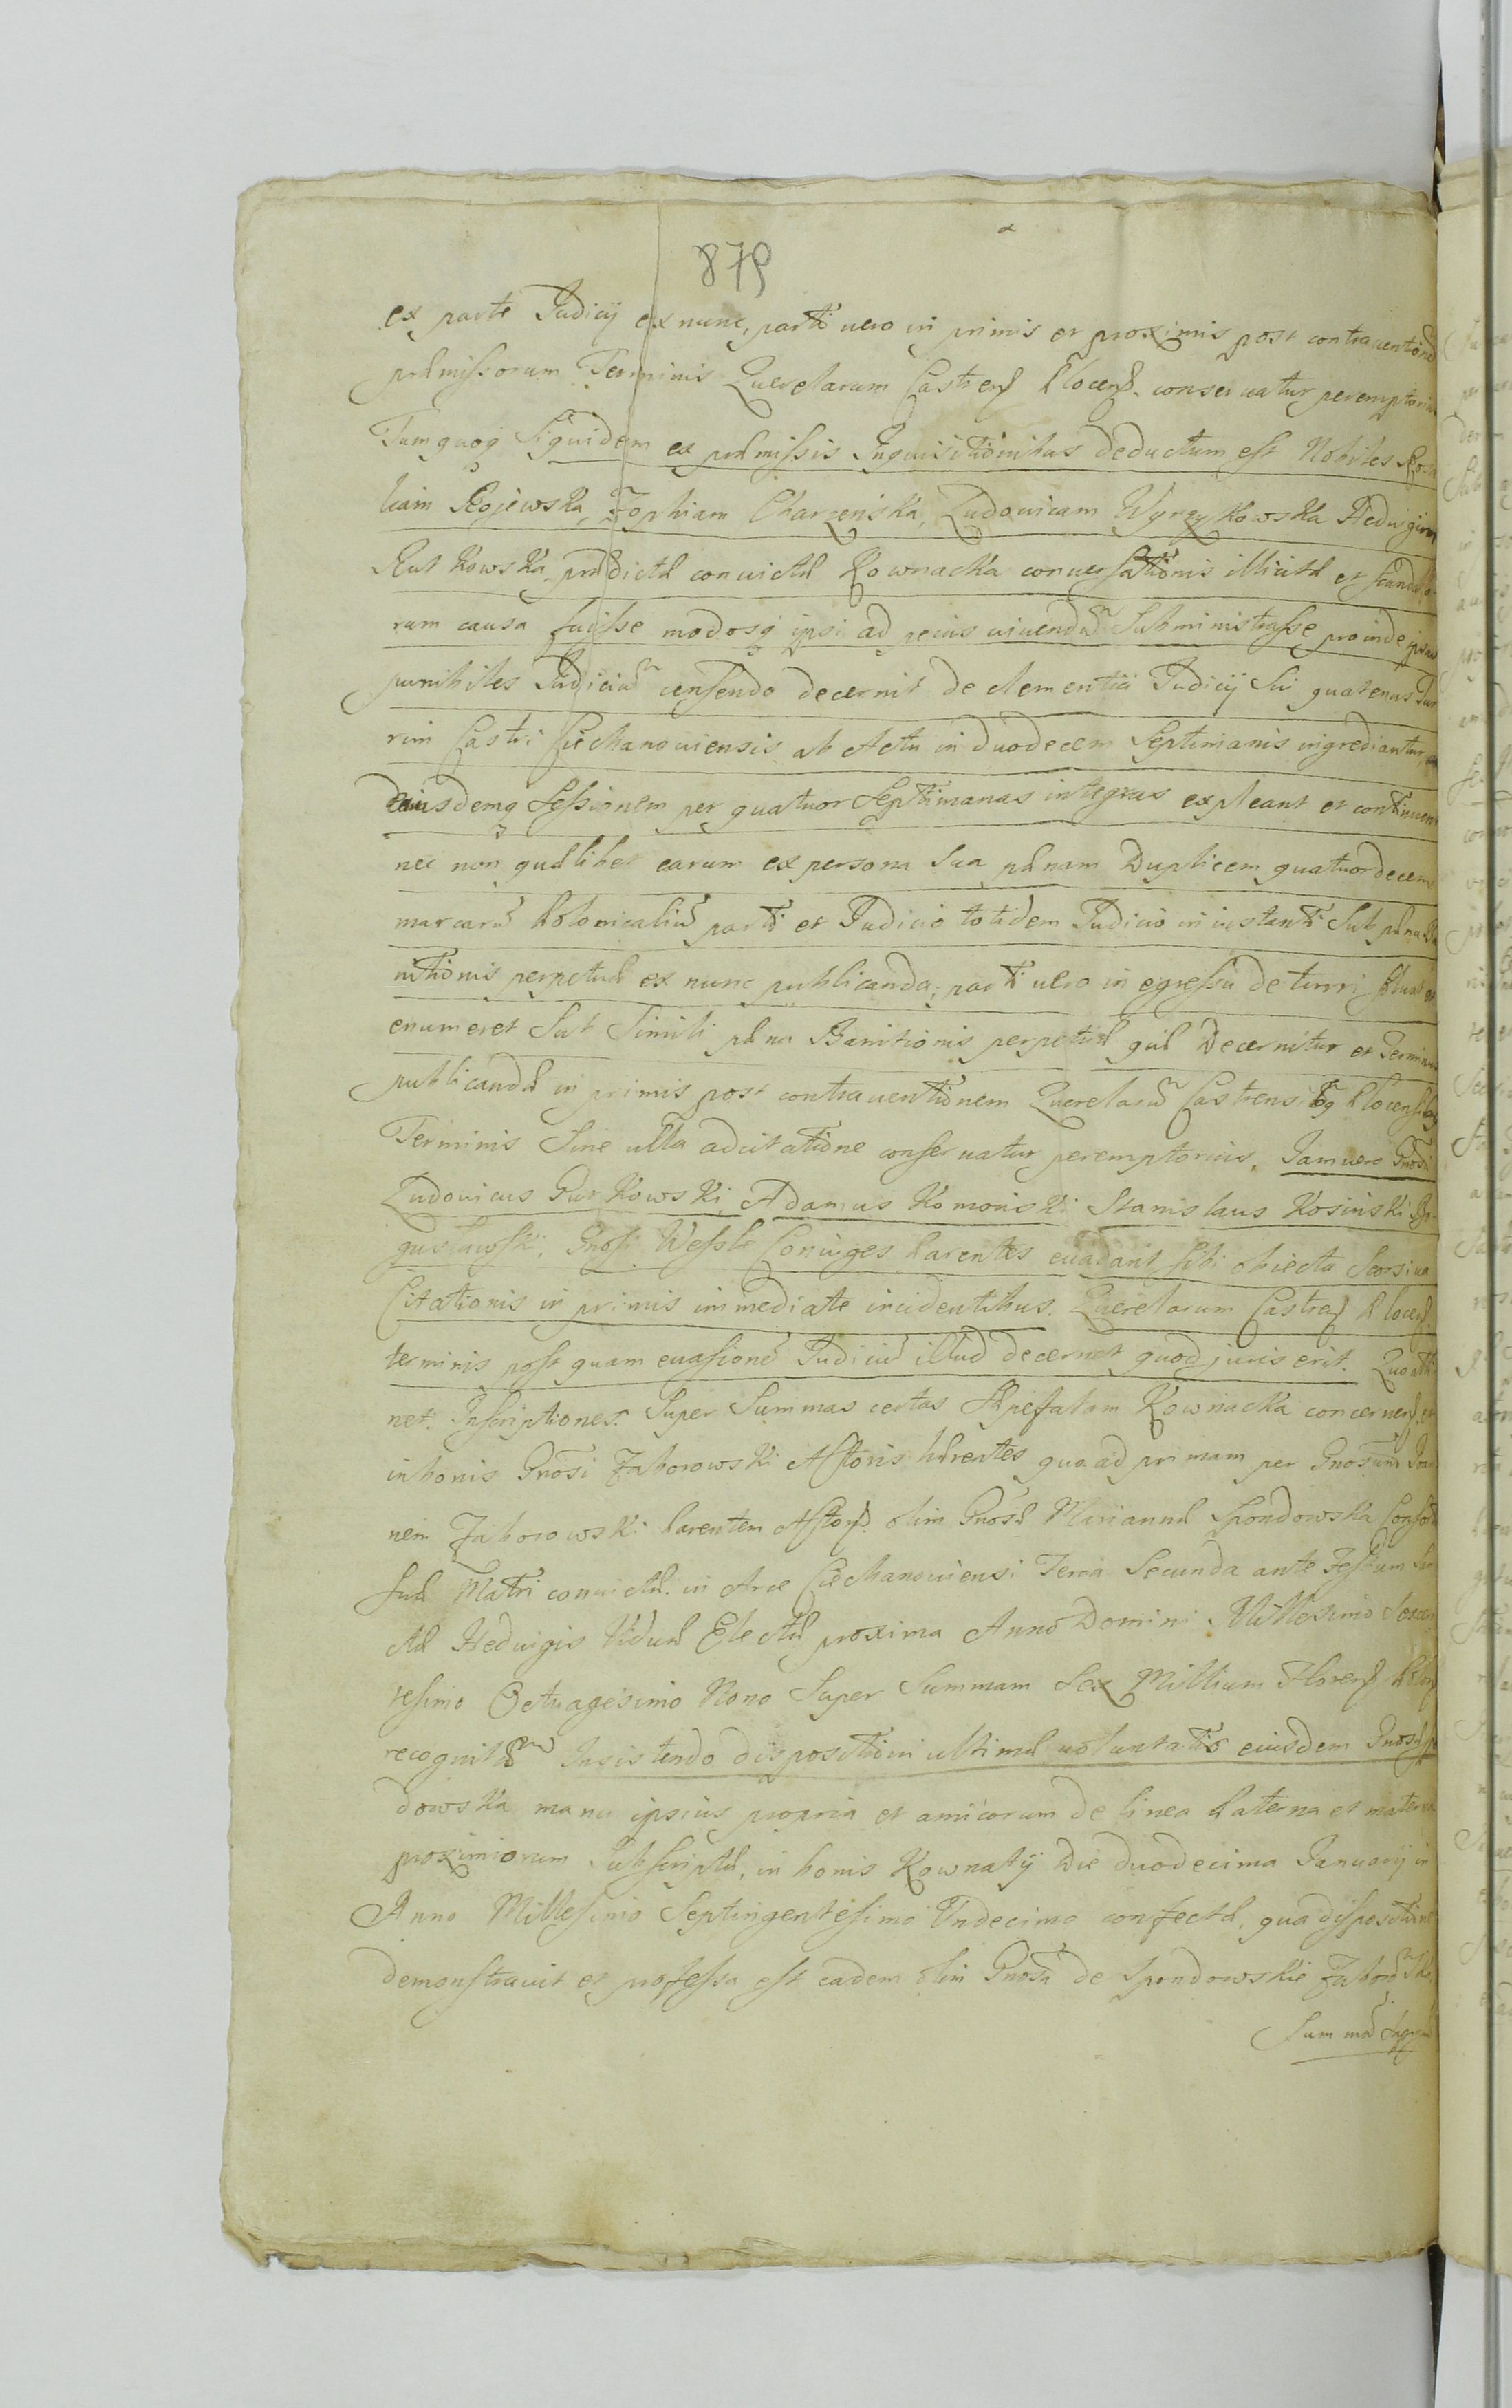 879
ex parte Judicij ex nunc, parti uero in primis et proximis post contrauentione
præmissorum Terminis Querelarum Castrens Plocens. conseruatur peremptorius
Tum quoq Siquidem ex præmissis Inquisitionibus deductum est Nobiles Rosa
liam Rojewska, Zophiam Charzeńska, Ludouicam Wyrzykowska Heduigim
Rutkowska, prædictæ conuictæ Kownacka conuersationis illicitæ et scandalo
rum causa fuisse modosq ipsi ad peius uiuendum Subministrasse proinde ipsas
punibiles Judicium censendo decernit de clementia Judicij Sui quatenus Tur
rim Castri Ciechanouiensis ab Actu in duodecem Septimanis ingrediantur,
eiusdemq Sessionem per quatuor Septimanas integras expleant et continuent
nec non quælibet earum ex persona Sua pænam Duplicem quatuordecem
marcarum Polonicaliũ parti et Judicio totidem Judicio in instanti Sub pæna Ba
nitionis perpetuæ ex nunc publicanda, parti uero in egressu de turri soluat et
enumeret Sub Simili pæna Banitionis perpetuæ quæ Decernitur et Terminus
publicandæ in primis post contrauentionem Querelarũ Castrensibq Plocensibq
Terminis Sine ulla adcitatione conseruatur peremptorius, Jam uero Gnosi
Ludouicus Gurkowski, Adamus Komoriski Stanislaus Kosinski
gustawski, Gnosi Wessle Coniuges Parentes euadant sibi obiecta Seorsiua
Citationis in primis immediate incidentibus. Querelarum Castren Plocens.
terminis post quam euasionẽ Judiciũ illud decernet quod juris erit. Quo atti
net. Inscriptiones. Super Summas certas Præfatam Kownacka concernen et
in bonis Gnosi Zaborowski Actoris hærentes quo ad primam per Gnosum Joan
nem Zaborowski Parentem Actoris olim Gnosæ Mariannæ Spondowska Consorti
Suæ Matri conuictæ in Arce Ciechanouiensi Feria Secunda ante Festum San
ctæ Heduigis Viduæ Electæ proxima Anno Domini Millesimo Sexcen
tesimo Octuagesimo Nono Super Summam Sex Millium Floren Polon
recognitam Insistendo dispositioni ultimæ uoluntatis eiusdem Gnosæ
dowska manu ipsius propria et amicorum de linea Paterna et materna
proximiorum Subscriptæ, in bonis Kownaty Die duodecima Januarij in
Anno Millesimo Septingentesimo Undecimo confectæ, qua dispositione
demonstrauit et professa est eadem olim Gnosa de Spondowskie Zaborowska